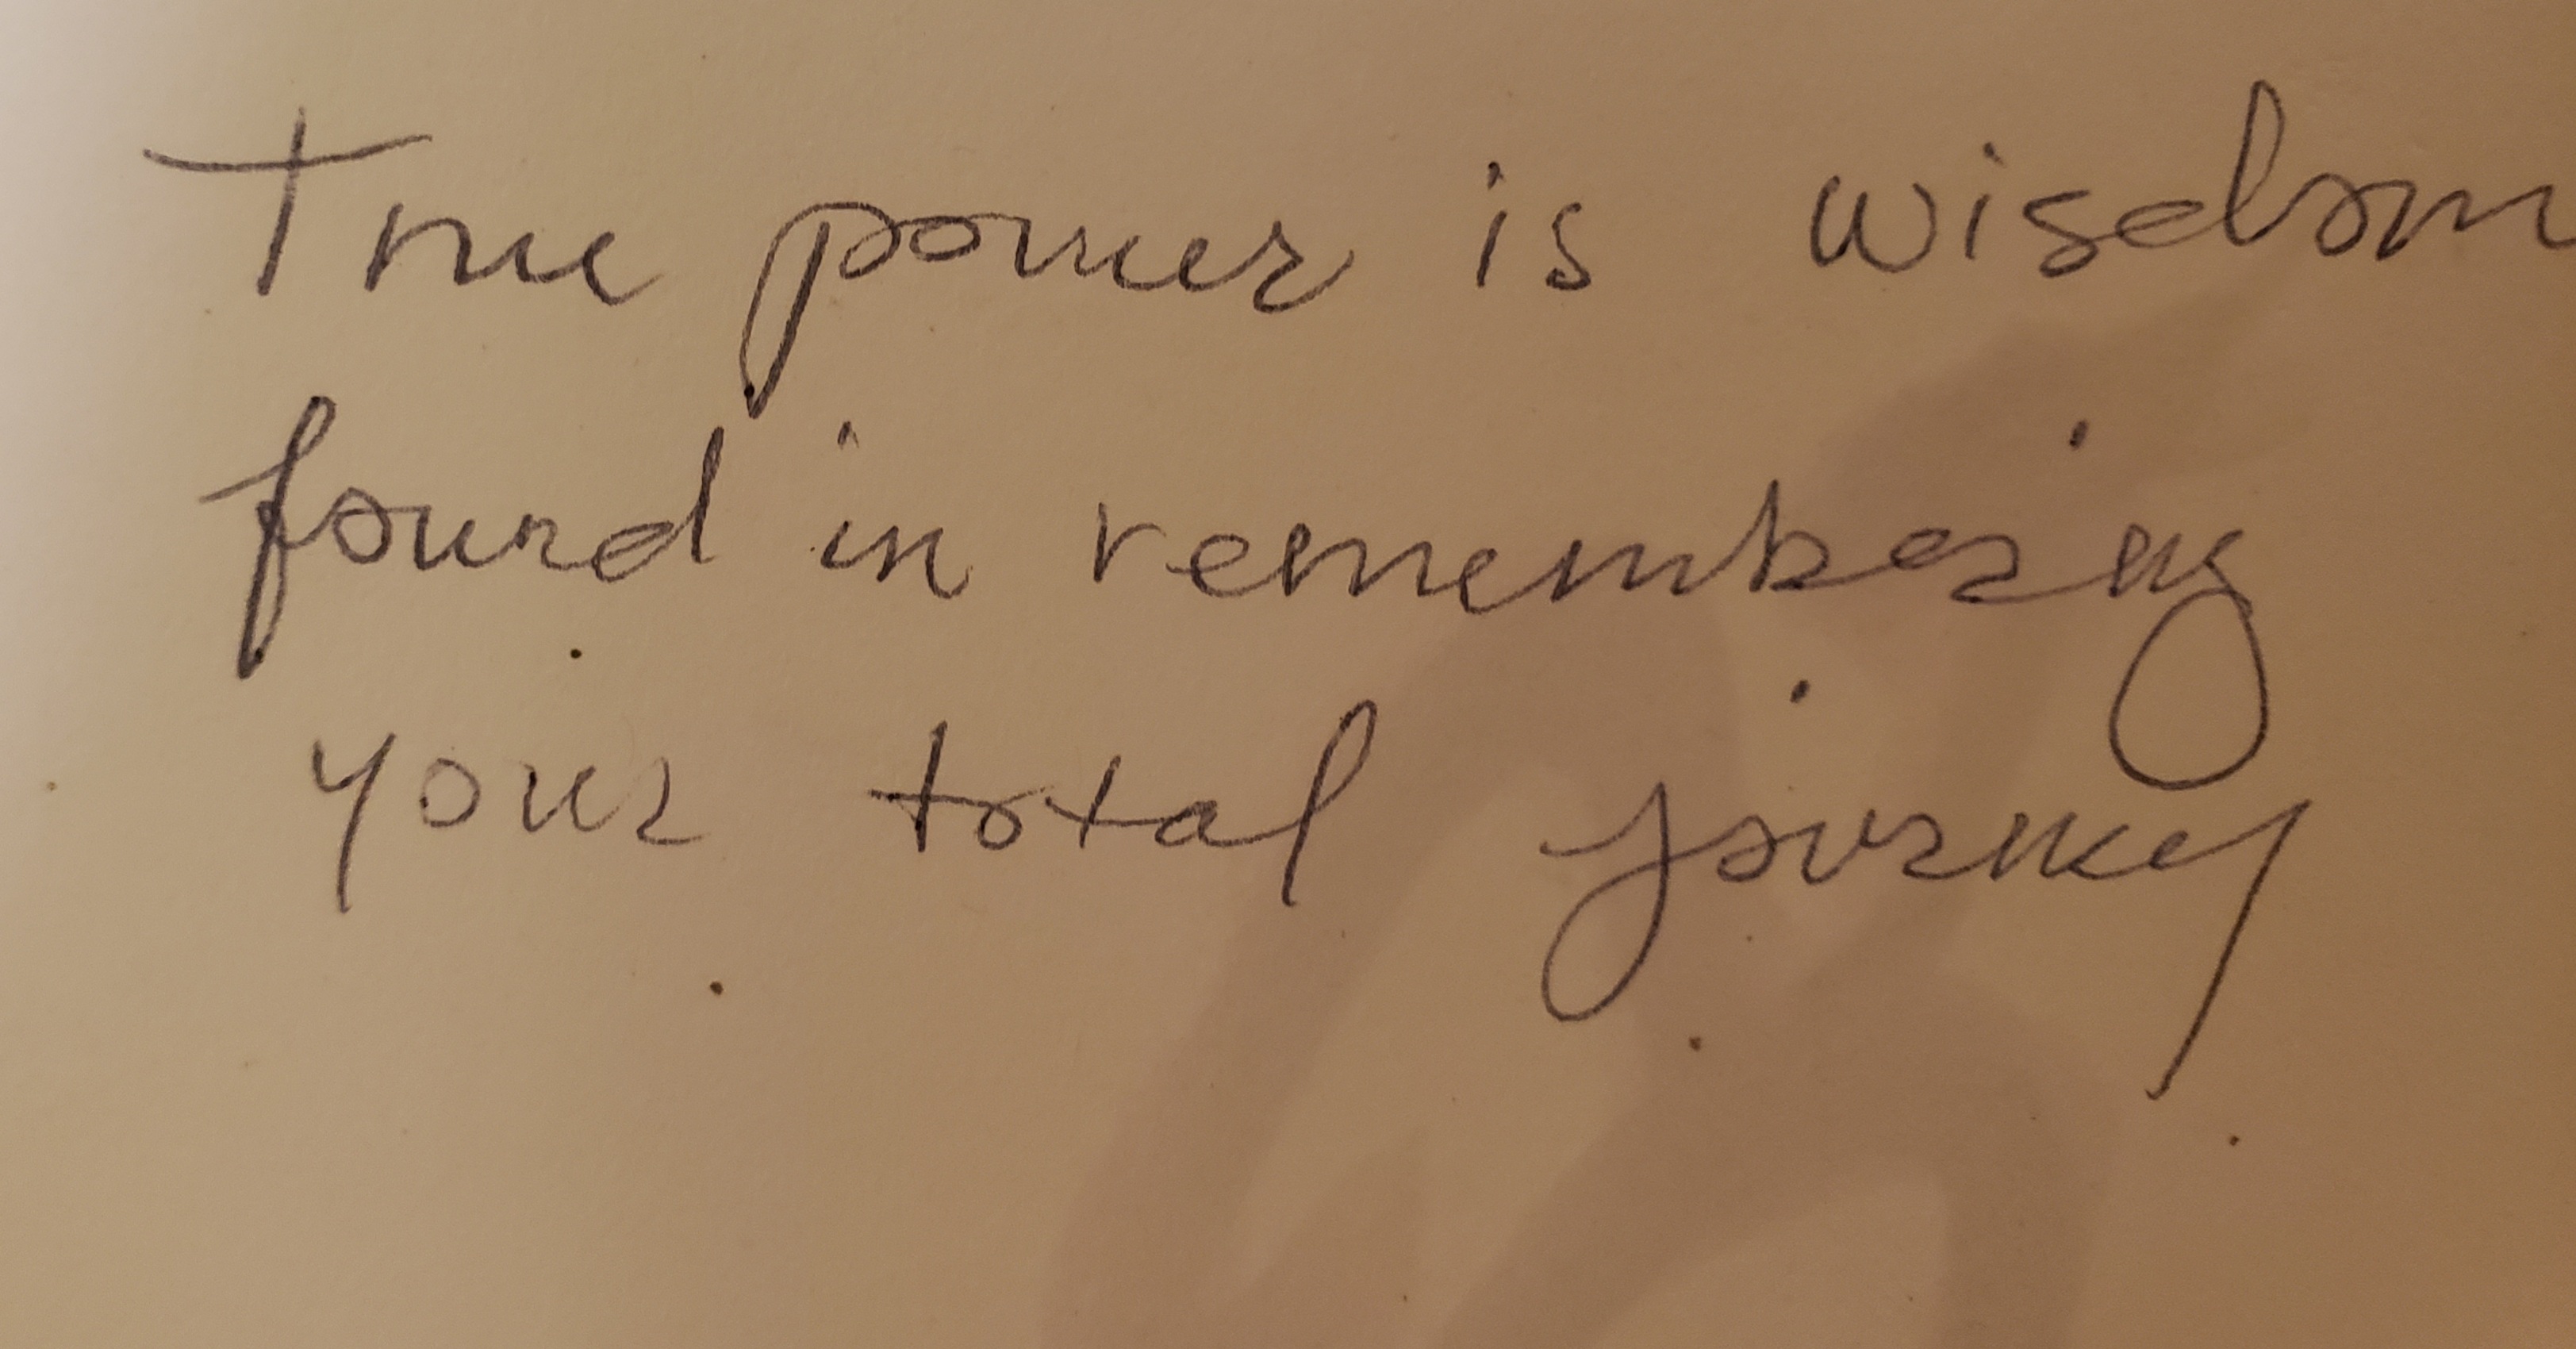 True power is wisdom
found in remembering
your total journey